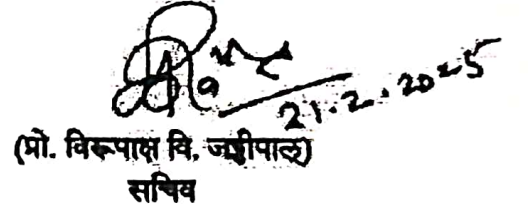 21.2.2025
(प्रो. विरूपाक्ष वि. जड्डीपाल)
सचिव